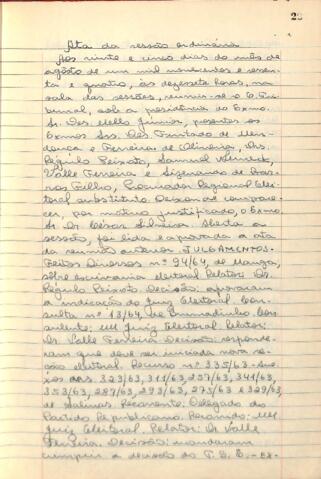 28
Ata da sessão ordinária
Aos vinte e cinco dias do mês de
agôsto de um mil novecentos e sessen-
ta e quatro, às dezesseis horas, na
sala das sessões, reuniu-se o E. Tri-
bunal, sob a presidência do Exmo.
Sr. Des. Mello Júnior, presentes os
Exmos Srs. Des. Furtado de Men-
donça e Ferreira de Oliveira, Drs.
Régulo Peixoto, Samuel
Valle Ferreira e Sizenando de Bar-
ros Filho, Procurador Regional Elei-
toral substituto. Deixou de compare-
cer, por motivo justificado, o Exmo
Sr. Dr. Cesar Silveira. Aberta a
sessão, foi lida e aprovada a ata
da reunião anterior. JULGAMENTOS.
Feitos Diversos nº 94/64, de Manga,
sôbre escrivania eleitoral. Relator: Dr.
Régulo Peixoto. Decisão: aprovaram
a indicação do Juiz Eleitoral. Con-
sulta nº 13/64, de Brumadinho. Con-
sulente: MM Juiz Eleitoral. Relator:
Dr. Valle Ferreira. Decisão: responde-
ram que deve ser iniciada nova se-
ção eleitoral. Recurso nº 335/63 - Ane-
xos aos 323/63, 311/63, 257/63, 341/63,
353/63, 287/63, 293/63, 275/63 e 329/63,
de Salinas. Recorrente: Delegado do
Partido Republicano. Recorrido: MM
Juiz Eleitoral. Relator: Dr. Valle
Ferreira. Decisão: mandaram
cumprir a decisão do T. S. E. -